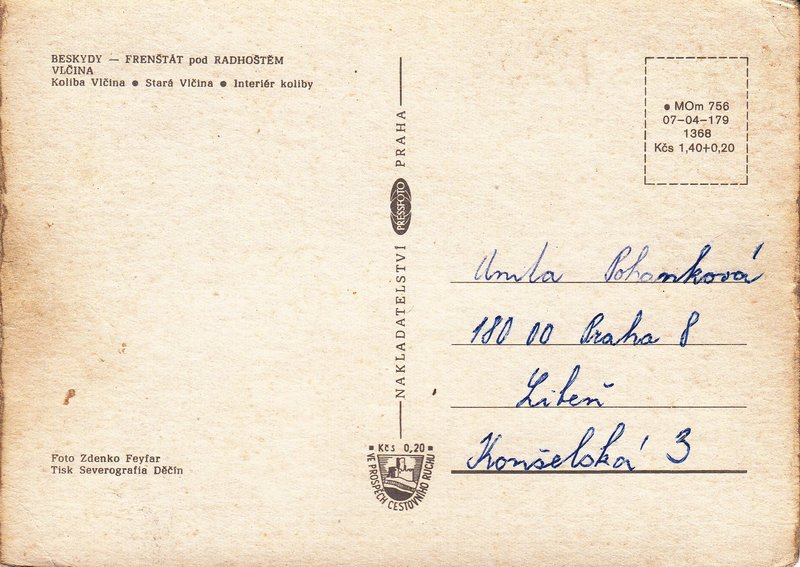 BESKYDY — FRENŠTÁT pod RADHOŠTĚM
VLČINA
Koliba Vlčina ● Stará Vlčina ● Interiér koliby
● MOm 756
07-04-179
1368
Kčs 1,40+0,20
NAKLADATELSTVÍ PRESSFOTO PRAHA
Pohanková
180 00 Praha 8
Libeň
Konšelská 3
Foto Zdenko Feyfar
Tisk Severografia Děčín
Kčs 0,20
VE PROSPĚCH CESTOVNÍHO RUCHU